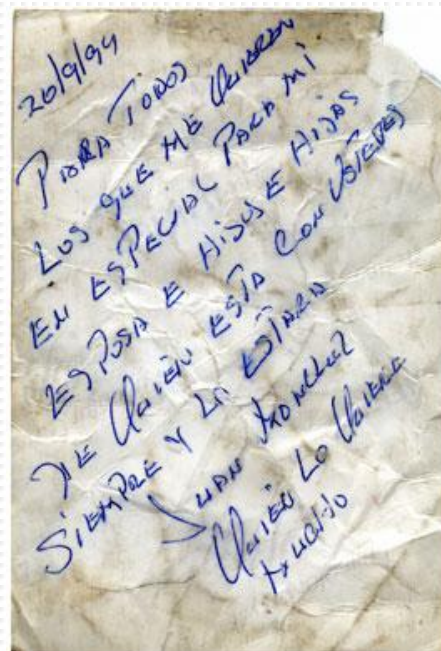 20/9/94
PARA TODOS
LOS QUE ME QUIEREN
EN ESPECIAL PARA MI
ESPOSA E HIJOS E HIJAS
DE QUIEN ESTA CON USTEDES
SIEMPRE Y LO ESTARA
JUAN
QUIEN LO QUIERE
MUCHO